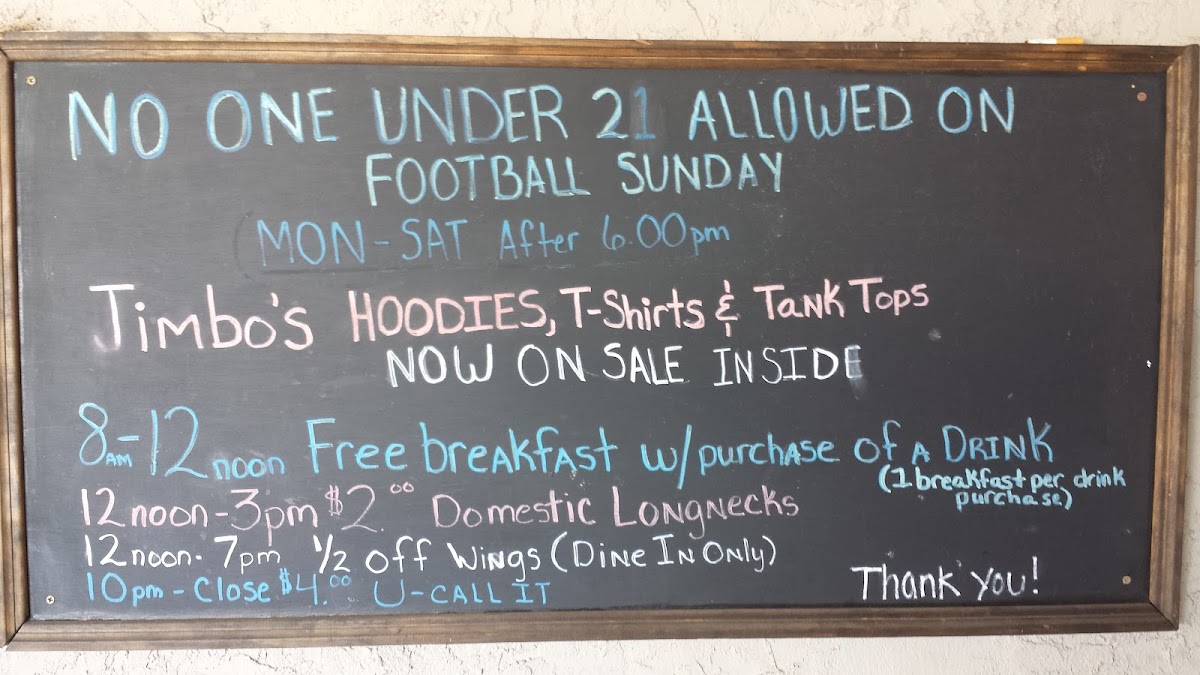 NO ONE UNDER 21 ALLOWED ON
FOOTBALL SUNDAY
MON-SAT After 6:00pm
Jimbo's HOODIES, T-Shirts & TANK TOPS
NOW ON SALE INSIDE
8AM-12noon Free breakfAST w/purchASE of A DRINK
(1 breakfast per drink
purchase)
12noon-3pm $2.00 Domestic LONGNECKS
12noon-7pm 1/2 off WINGS (DINE IN ONLY)
10pm-Close $4.00 U-CALL IT
Thank you!